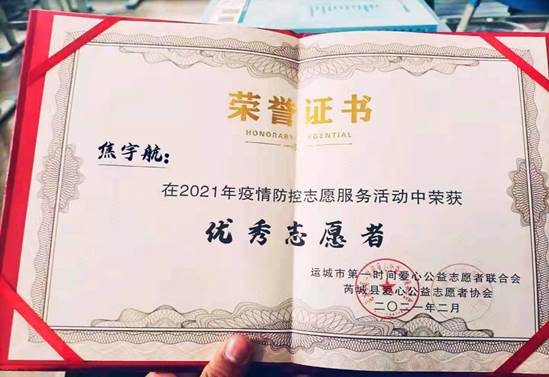 荣誉证书
HONORARY CREDENTIAL
焦宇航：
在2021年疫情防控志愿服务活动中荣获
优秀志愿者
运城市第一时间爱心公益志愿者联合会
芮城县爱心公益志愿者协会
二〇二一年二月